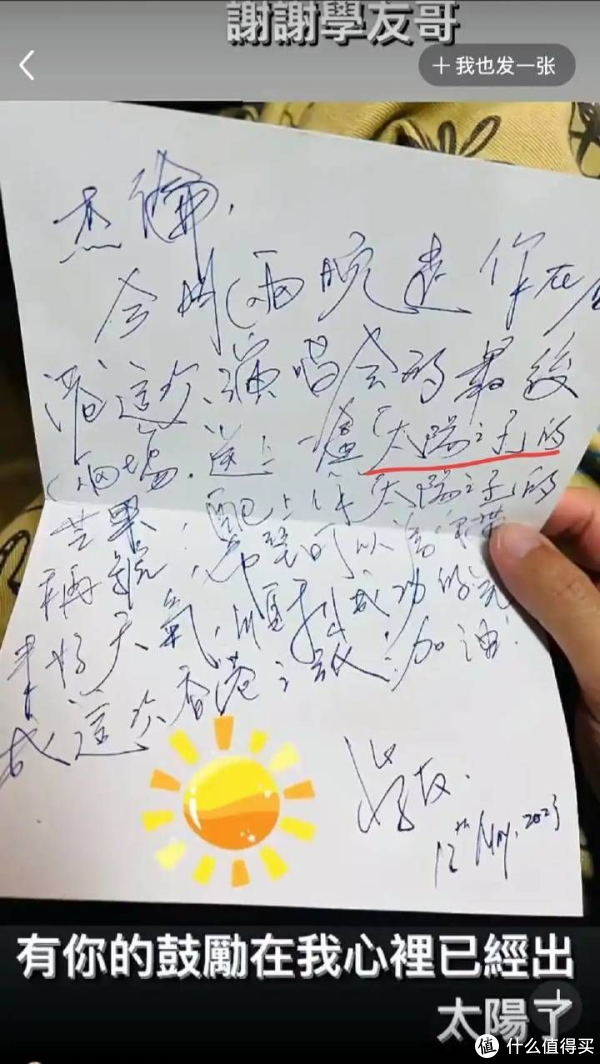 謝謝學友哥
+ 我也发一张
杰倫,
今明兩晚是你在
港這次演唱會的最後
兩場.送上一盒「太陽之子」的
芒果,配上你太陽之子的
稱號,希望可以為
來好天氣,順利成功的完
成這次香港之旅!加油!
學友.
12th May, 2023
有你的鼓勵在我心裡已經出
太陽了
值 什么值得买